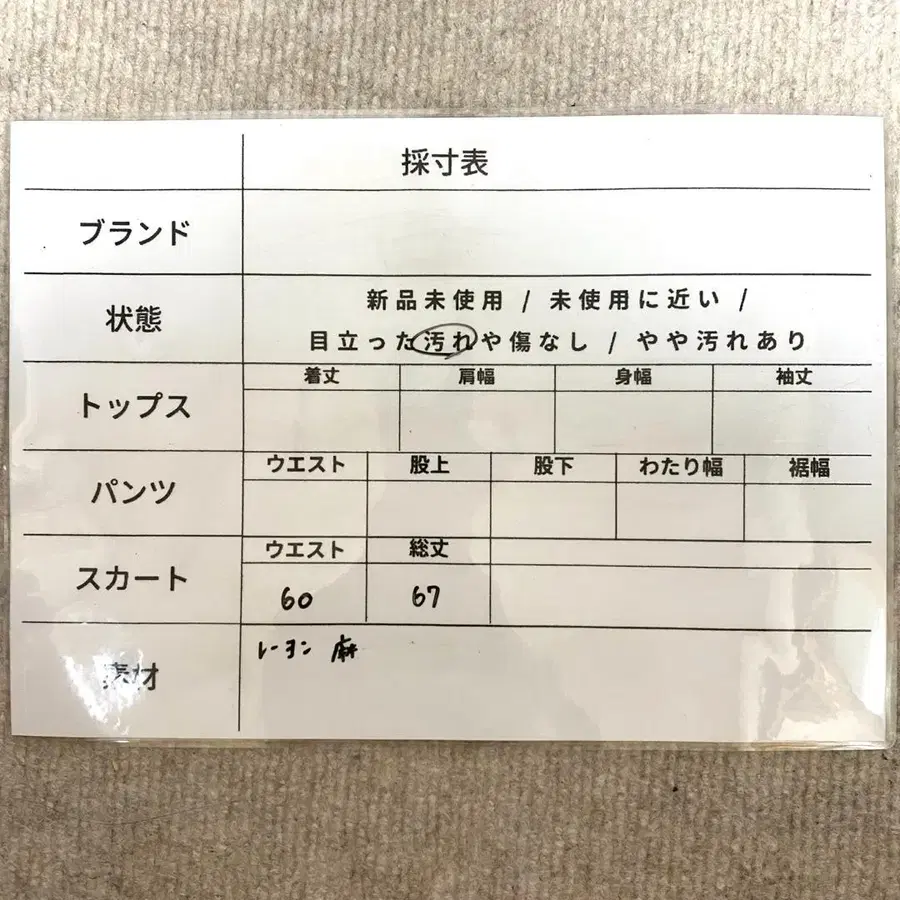 採寸表
ブランド
状態
新品未使用 / 未使用に近い /
目立った汚れや傷なし / やや汚れあり
トップス
着丈 肩幅 身幅 袖丈
パンツ
ウエスト 股上 股下 わたり幅 裾幅
スカート
ウエスト 総丈
60 67
素材
レーヨン 麻